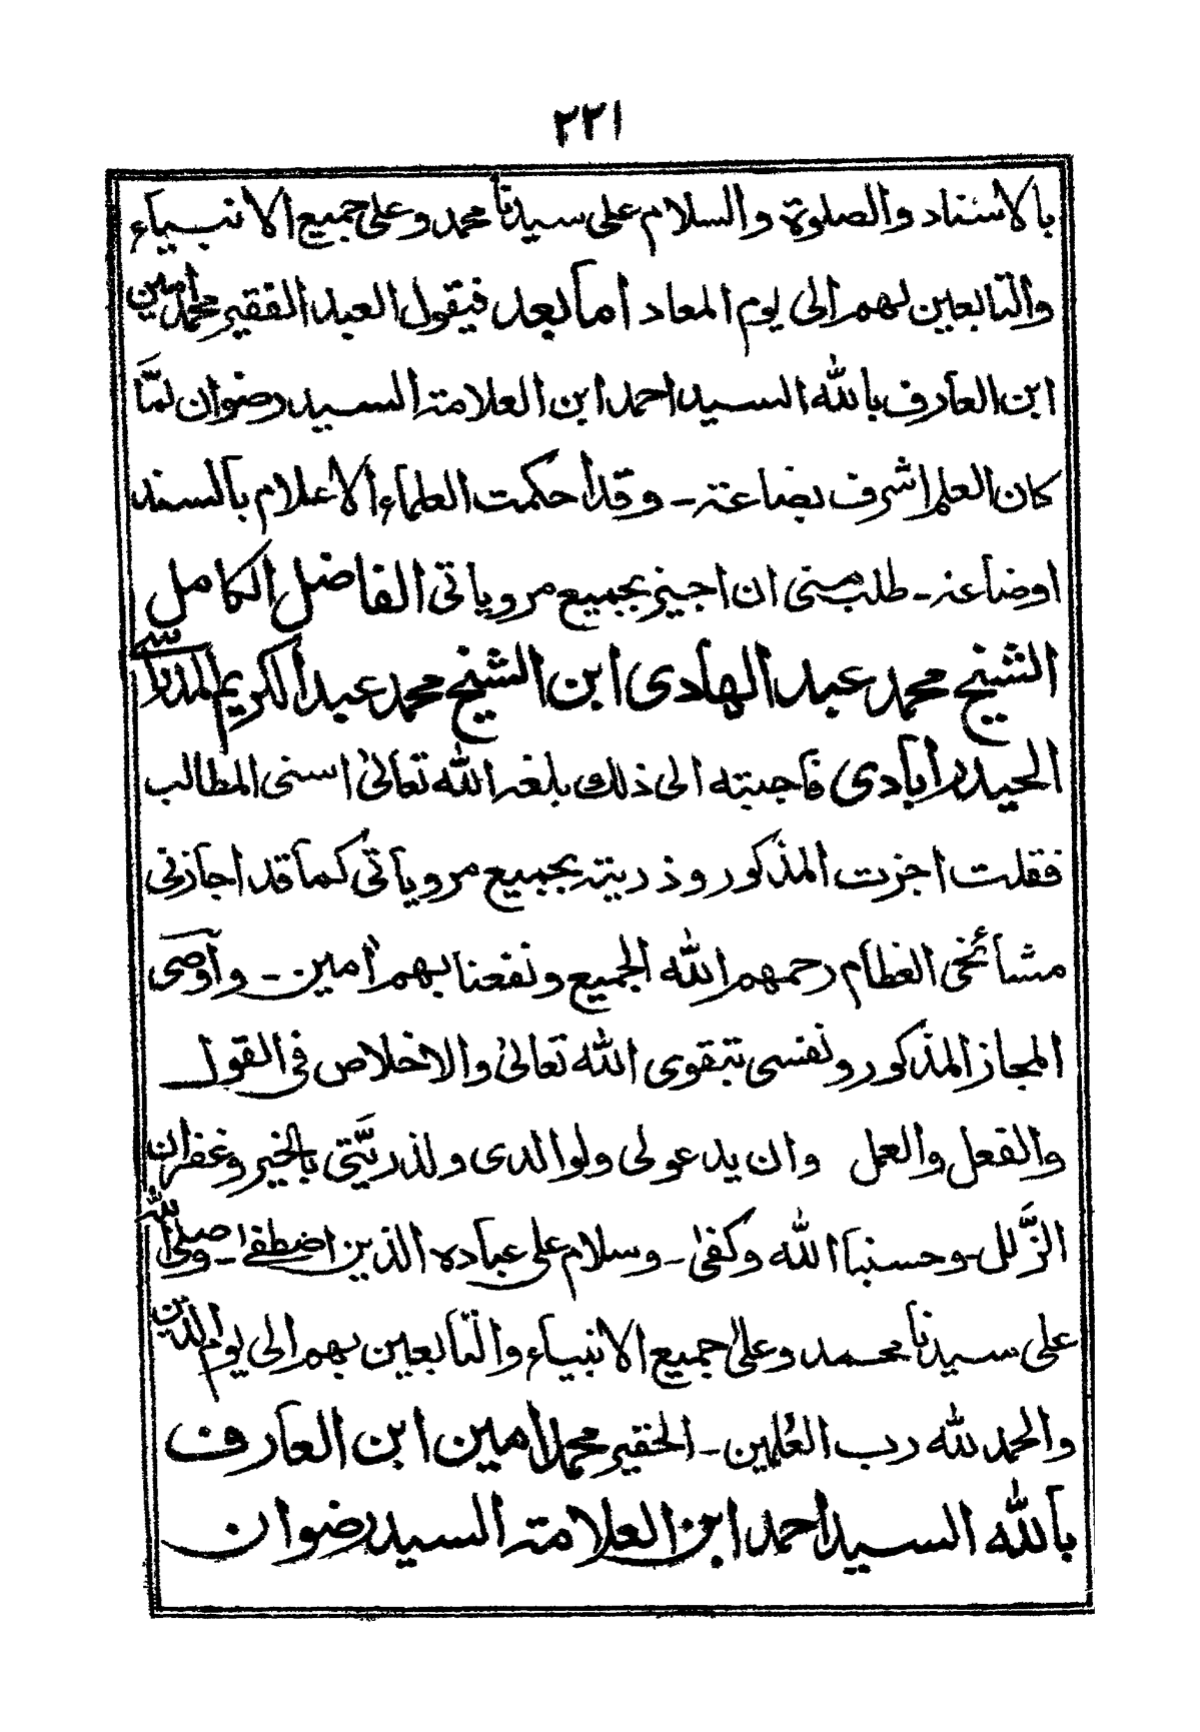 ٢٢١
بالاسناد والصلوة والسلام على سيدنا محمد وعلى جميع الانبياء
والتابعين لهم الى يوم المعاد امابعد فيقول العبد الفقير محمد امين
ابن العارف بالله السيد احمد ابن العلامة السيد رضوان لمّا
كان العلم اشرف بضاعة - وقد احكمت العلماء الاعلام بالسند
اوضاعه - طلب منى ان اجيز بجميع مروياتى الفاضل الكامل
الشيخ محمد عبد الهادى ابن الشيخ محمد عبد الكريم المدراسى
الحيدرآبادى فاجبته الى ذلك بلغه الله تعالىٰ اسنى المطالب
فقلت اجزت المذكور وذريته بجميع مروياتى كما قد اجازنى
مشائخى العظام رحمهم الله الجميع ونفعنا بهم امين - واوصى
المجاز المذكور ونفسى بتقوى الله تعالىٰ والاخلاص فى القول
والفعل والعمل وان يدعولى ولوالدى ولذريّتى بالخير وغفران
الزَّلل - وحسبنا الله وكفىٰ - وسلام على عباده الذين اصطفىٰ - وصلى الله
على سيدنا محمد وعلىٰ جميع الانبياء والتابعين بهم الى يوم الدين
والحمد لله رب العٰلمين - الحقير محمد امين ابن العارف
بالله السيد احمد ابن العلامة السيد رضوان